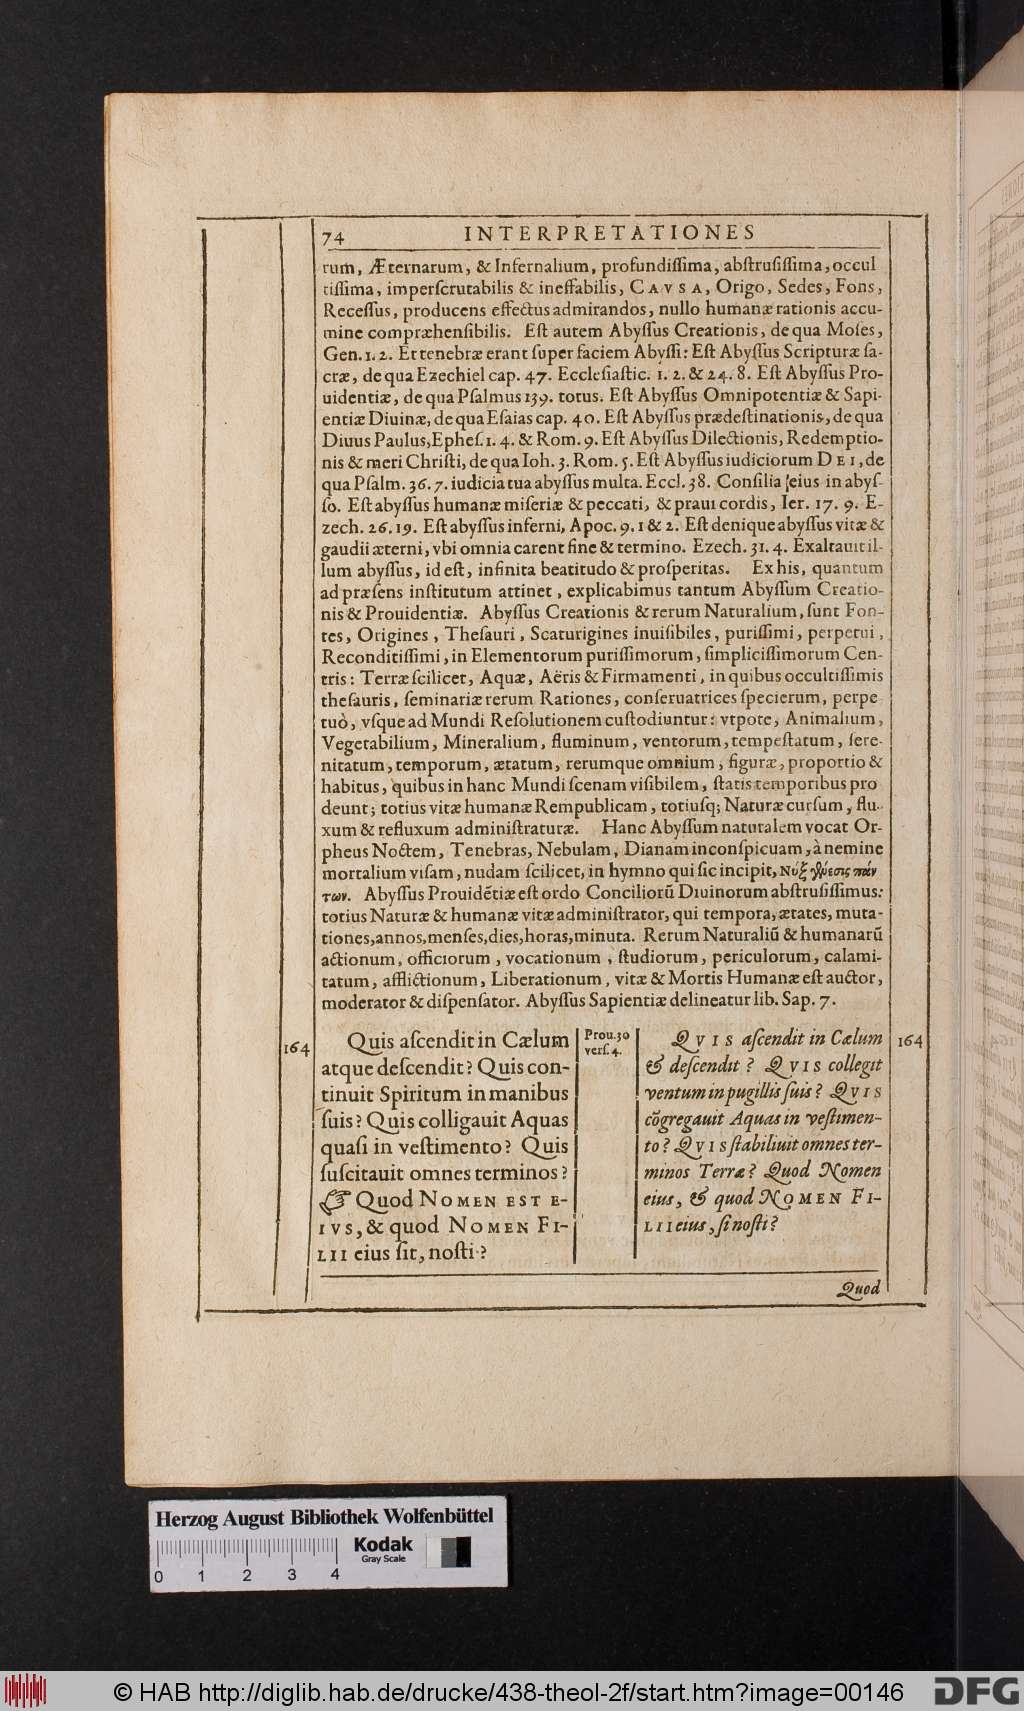 74 INTERPRETATIONES
rum, Æternarum, & Infernalium, profundiſſima, abſtruſiſſima, occul
tiſſima, imperſcrutabilis & ineffabilis, CAVSA, Origo, Sedes, Fons,
Receſſus, producens effectus admirandos, nullo humanæ rationis accu-
mine compræhenſibilis. Eſt autem Abyſſus Creationis, de qua Moſes,
Gen. 1. 2. Et tenebræ erant ſuper faciem Abyſſi: Eſt Abyſſus Scripturæ ſa-
cræ, de qua Ezechiel cap. 47. Eccleſiaſtic. 1. 2. & 24. 8. Eſt Abyſſus Pro-
uidentiæ, de qua Pſalmus 139. totus. Eſt Abyſſus Omnipotentiæ & Sapi-
entiæ Diuinæ, de qua Eſaias cap. 40. Eſt Abyſſus prædeſtinationis, de qua
Diuus Paulus, Epheſ. 1. 4. & Rom. 9. Eſt Abyſſus Dilectionis, Redemptio-
nis & meri Chriſti, de qua Ioh. 3. Rom. 5. Eſt Abyſſus iudiciorum DEI, de
qua Pſalm. 36. 7. iudicia tua abyſſus multa. Eccl. 38. Conſilia eius in abyſ-
ſo. Eſt abyſſus humanæ miſeriæ & peccati, & praui cordis, Ier. 17. 9. E-
zech. 26. 19. Eſt abyſſus inferni, Apoc. 9. 1 & 2. Eſt denique abyſſus vitæ &
gaudii æterni, vbi omnia carent fine & termino. Ezech. 31. 4. Exaltauit il-
lum abyſſus, id eſt, infinita beatitudo & proſperitas. Ex his, quantum
ad præſens inſtitutum attinet, explicabimus tantum Abyſſum Creatio-
nis & Prouidentiæ. Abyſſus Creationis & rerum Naturalium, ſunt Fon-
tes, Origines, Theſauri, Scaturigines inuiſibiles, puriſſimi, perpetui,
Reconditiſſimi, in Elementorum puriſſimorum, ſimpliciſſimorum Cen-
tris: Terræ ſcilicet, Aquæ, Aëris & Firmamenti, in quibus occultiſſimis
theſauris, ſeminariæ rerum Rationes, conſeruatrices ſpecierum, perpe
tuò, vſque ad Mundi Reſolutionem cuſtodiuntur: vtpote, Animalium,
Vegetabilium, Mineralium, fluminum, ventorum, tempeſtatum, ſere-
nitatum, temporum, ætatum, rerumque omnium, figuræ, proportio &
habitus, quibus in hanc Mundi ſcenam viſibilem, ſtatis temporibus pro
deunt; totius vitæ humanæ Rempublicam, totiuſq; Naturæ curſum, flu-
xum & refluxum adminiſtraturæ. Hanc Abyſſum naturalem vocat Or-
pheus Noctem, Tenebras, Nebulam, Dianam inconſpicuam, à nemine
mortalium viſam, nudam ſcilicet, in hymno qui ſic incipit, Νὺξ γένεσις πάν
των. Abyſſus Prouidẽtiæ eſt ordo Conciliorũ Diuinorum abſtruſiſſimus:
totius Naturæ & humanæ vitæ adminiſtrator, qui tempora, ætates, muta-
tiones, annos, menſes, dies, horas, minuta. Rerum Naturaliũ & humanarũ
actionum, officiorum, vocationum, ſtudiorum, periculorum, calami-
tatum, afflictionum, Liberationum, vitæ & Mortis Humanæ eſt auctor,
moderator & diſpenſator. Abyſſus Sapientiæ delineatur lib. Sap. 7.
164
Quis aſcendit in Cælum
atque deſcendit? Quis con-
tinuit Spiritum in manibus
ſuis? Quis colligauit Aquas
quaſi in veſtimento? Quis
ſuſcitauit omnes terminos?
☞ Quod NOMEN EST E-
IVS, & quod NOMEN FI-
LII eius ſit, noſti?
Prou. 30
verſ. 4.
QVIS aſcendit in Cælum
& deſcendit? QVIS collegit
ventum in pugillis ſuis? QVIS
cõgregauit Aquas in veſtimen-
to? QVIS ſtabiliuit omnes ter-
minos Terræ? Quod Nomen
eius, & quod NOMEN FI-
LII eius, ſi noſti?
164
Quod
Herzog August Bibliothek Wolfenbüttel
Kodak
Gray Scale
0 1 2 3 4
© HAB http://diglib.hab.de/drucke/438-theol-2f/start.htm?image=00146
DFG